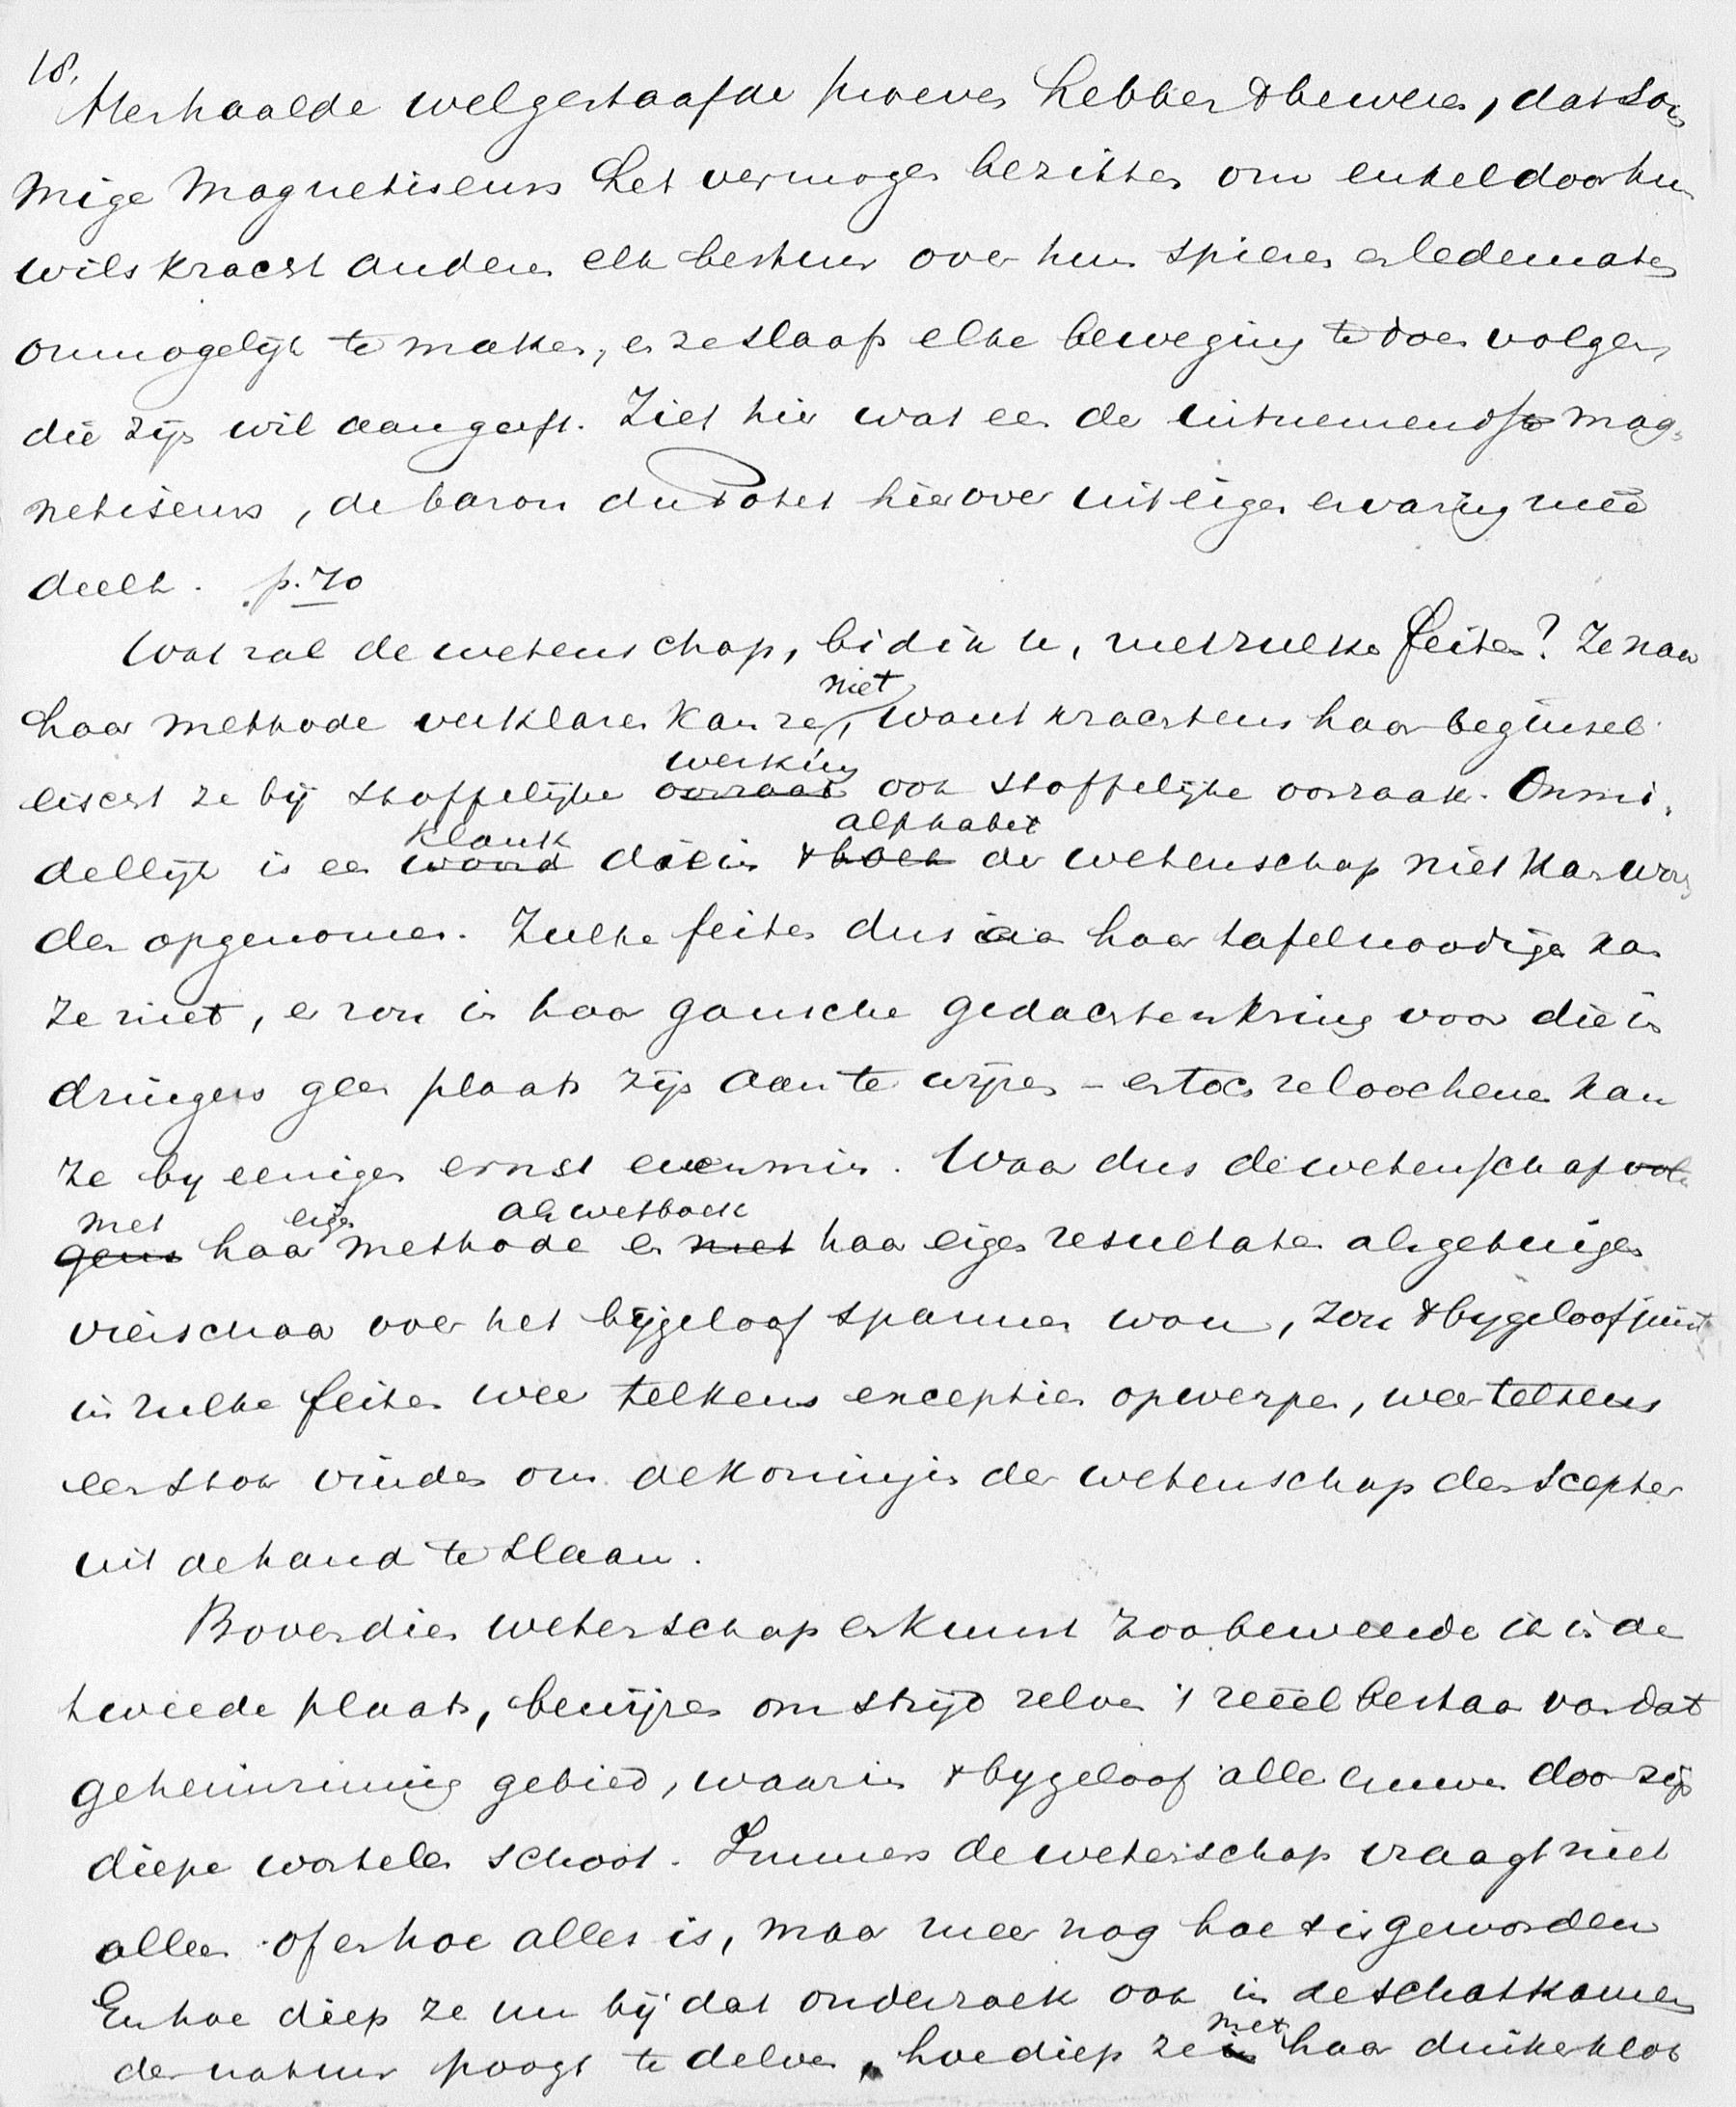 18.
Herhaalde welgestaafde proeven hebben 't bewezen, dat som
mige magnetiseurs het vermogen bezitten om enkel door hun
wilskracht anderen elk bestuur over hun spieren en ledematen
onmogelijk te maken, en ze slaafs elke beweging te doen volgen,
die zijn wil aangeeft. Ziet hier wat een der uitnemendste mag-
netiseurs, de baron du Potet hierover uit eigen ervaring meê
deelt. p. 70
Wat zal de wetenschap, bid ik u, met zulke feiten? Ze naar
haar methode verklaren kan ze niet, want krachtens haar beginsel
eischt ze bij stoffelijke oorzaak werking ook stoffelijke oorzaak. Onmid-
dellijk is een woord klank die in 't boek alphabet der wetenschap niet kan wor
den opgenomen. Zulke feiten dus aan haar tafel noodigen kan
ze niet, er zou in haar gansche gedachtenkring voor die in
dringers geen plaats zijn aan te wijzen – en toch ze loochenen kan
ze by eenigen ernst evenmin. Waar dus de wetenschap vol
gens met haar eigen methode als wetboek en met haar eigen resultaten als getuigen
vierschaar over het bijgeloof spannen wou, zou 't bygeloof juist
in zulke feiten weer telkens exceptien opwerpen, weer telkens
een stok vinden om de koningin der wetenschap den scepter
uit de hand te slaan.
Bovendien wetenschap en kunst zoo beweerde ik in de
tweede plaats, bewijzen om strijd zelven 't reëel bestaan van dat
geheimzinnig gebied, waarin 't bygeloof alle eeuwen door zijn
diepe wortelen schoot. Immers de wetenschap vraagt niet
alleen of en hoe alles is, maar meer nog hoe 't is geworden
En hoe diep ze nu bij dat onderzoek ook in de schatkamers
der natuur poogt te delven, hoe diep ze in met haar duikerklok